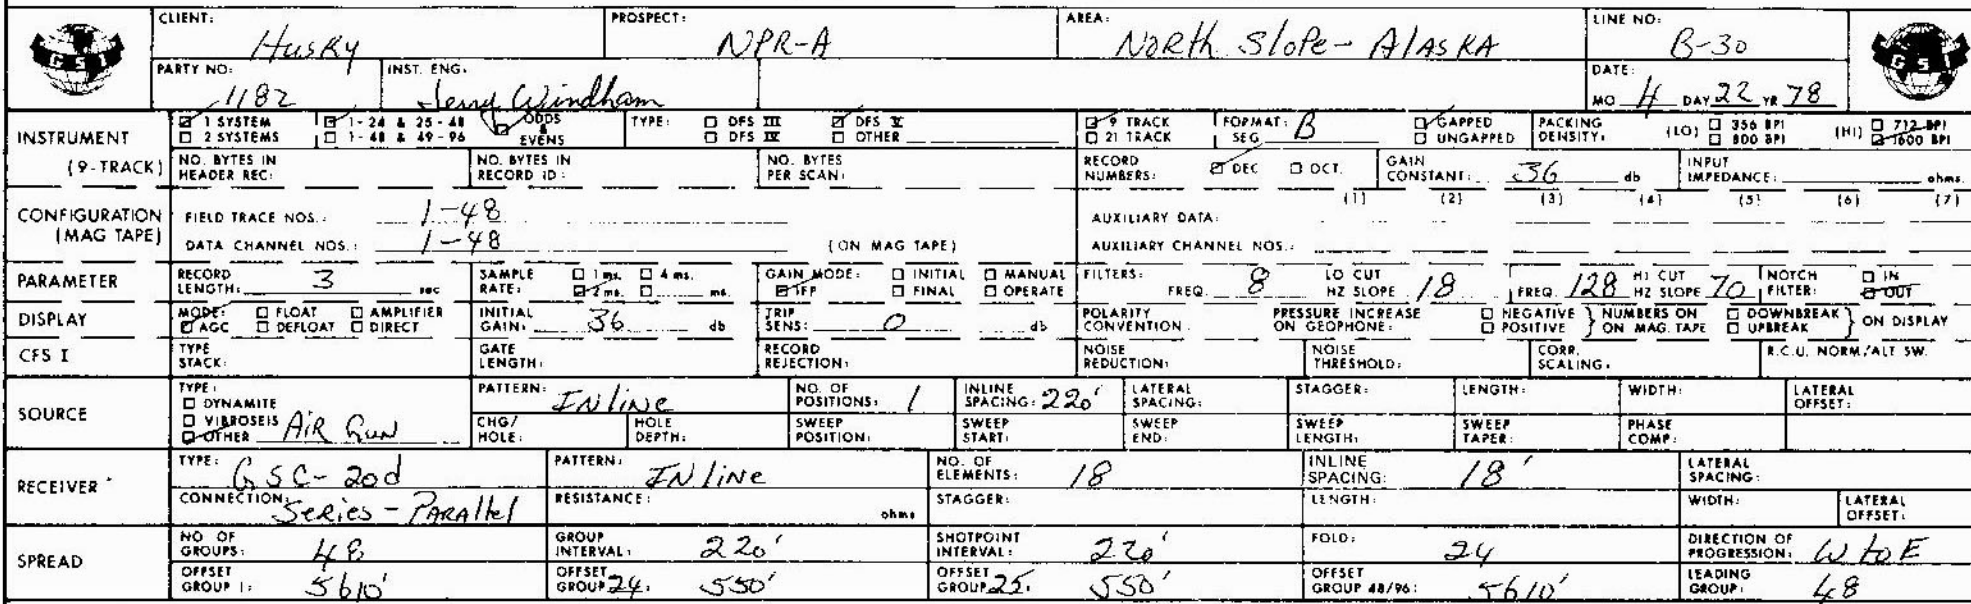 CLIENT: Husky PROSPECT: NPR-A AREA: North Slope - Alaska LINE NO: B-30
GSI GSI
PARTY NO: 1182 INST. ENG. Jerry Windham DATE: MO 4 DAY 22 YR 78
INSTRUMENT (9-TRACK)
1 SYSTEM 1-24 & 25-48 ODDS & EVENS TYPE: DFS III DFS V 9 TRACK FORMAT: SEG B GAPPED PACKING DENSITY: (LO) 356 BPI (HI) 712 BPI
2 SYSTEMS 1-48 & 49-96 DFS IV OTHER 21 TRACK UNGAPPED 800 BPI 1600 BPI
NO. BYTES IN HEADER REC: NO. BYTES IN RECORD ID: NO. BYTES PER SCAN: RECORD NUMBERS: DEC OCT. GAIN CONSTANT: 36 db INPUT IMPEDANCE: ohms.
CONFIGURATION (MAG TAPE)
FIELD TRACE NOS.: 1-48 AUXILIARY DATA: (1) (2) (3) (4) (5) (6) (7)
DATA CHANNEL NOS.: 1-48 (ON MAG TAPE) AUXILIARY CHANNEL NOS.:
PARAMETER RECORD LENGTH: 3 sec SAMPLE RATE: 1 ms. 4 ms. 2 ms. ms. GAIN MODE: INITIAL MANUAL IFP FINAL OPERATE FILTERS: FREQ. 8 LO CUT HZ SLOPE 18 FREQ. 128 HI CUT HZ SLOPE 70 NOTCH FILTER: IN OUT
DISPLAY MODE: FLOAT AMPLIFIER AGC DEFLOAT DIRECT INITIAL GAIN: 36 db TRIP SENS: 0 db POLARITY CONVENTION: PRESSURE INCREASE ON GEOPHONE: NEGATIVE POSITIVE } NUMBERS ON ON MAG. TAPE DOWNBREAK UPBREAK } ON DISPLAY
CFS I TYPE STACK: GATE LENGTH: RECORD REJECTION: NOISE REDUCTION: NOISE THRESHOLD: CORR. SCALING: R.C.U. NORM/ALT SW.
SOURCE TYPE: DYNAMITE VIBROSEIS OTHER Air Gun PATTERN: INline NO. OF POSITIONS: 1 INLINE SPACING: 220' LATERAL SPACING: STAGGER: LENGTH: WIDTH: LATERAL OFFSET:
CHG/HOLE: HOLE DEPTH: SWEEP POSITION: SWEEP START: SWEEP END: SWEEP LENGTH: SWEEP TAPER: PHASE COMP:
RECEIVER TYPE: GSC-20d PATTERN: INline NO. OF ELEMENTS: 18 INLINE SPACING: 18' LATERAL SPACING:
CONNECTION: Series-Parallel RESISTANCE: ohms STAGGER: LENGTH: WIDTH: LATERAL OFFSET:
SPREAD NO OF GROUPS: 48 GROUP INTERVAL: 220' SHOTPOINT INTERVAL: 220' FOLD: 24 DIRECTION OF PROGRESSION: W to E
OFFSET GROUP 1: 5610' OFFSET GROUP 24: 550' OFFSET GROUP 25: 550' OFFSET GROUP 48/96: 5610' LEADING GROUP: 48